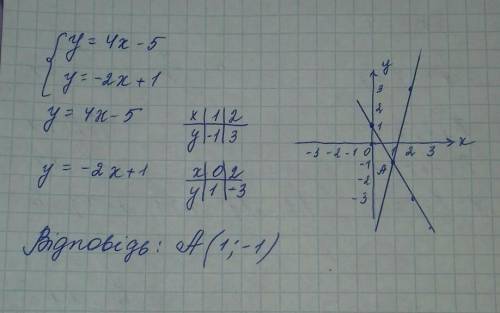 { y = 4x - 5
y = -2x + 1
y = 4x - 5
x | 1 | 2
y | -1 | 3
y = -2x + 1
x | 0 | 2
y | 1 | -3
Відповідь: A (1; -1)
y
3
2
1
-3 -2 -1 0 1 2 3 x
-1
A
-2
-3